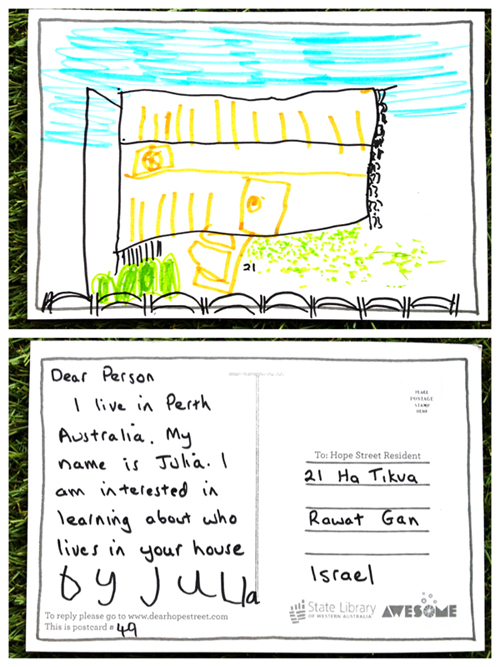 21
Dear Person
I live in Perth
Australia. My
name is Julia. I
am interested in
learning about who
lives in your house
by JULIa
To reply please go to www.dearhopestreet.com
This is postcard # 49
PLACE
POSTAGE
STAMP
HERE
To: Hope Street Resident
21 Ha Tikva
Rawat Gan
Israel
State Library
OF WESTERN AUSTRALIA
AWESOME